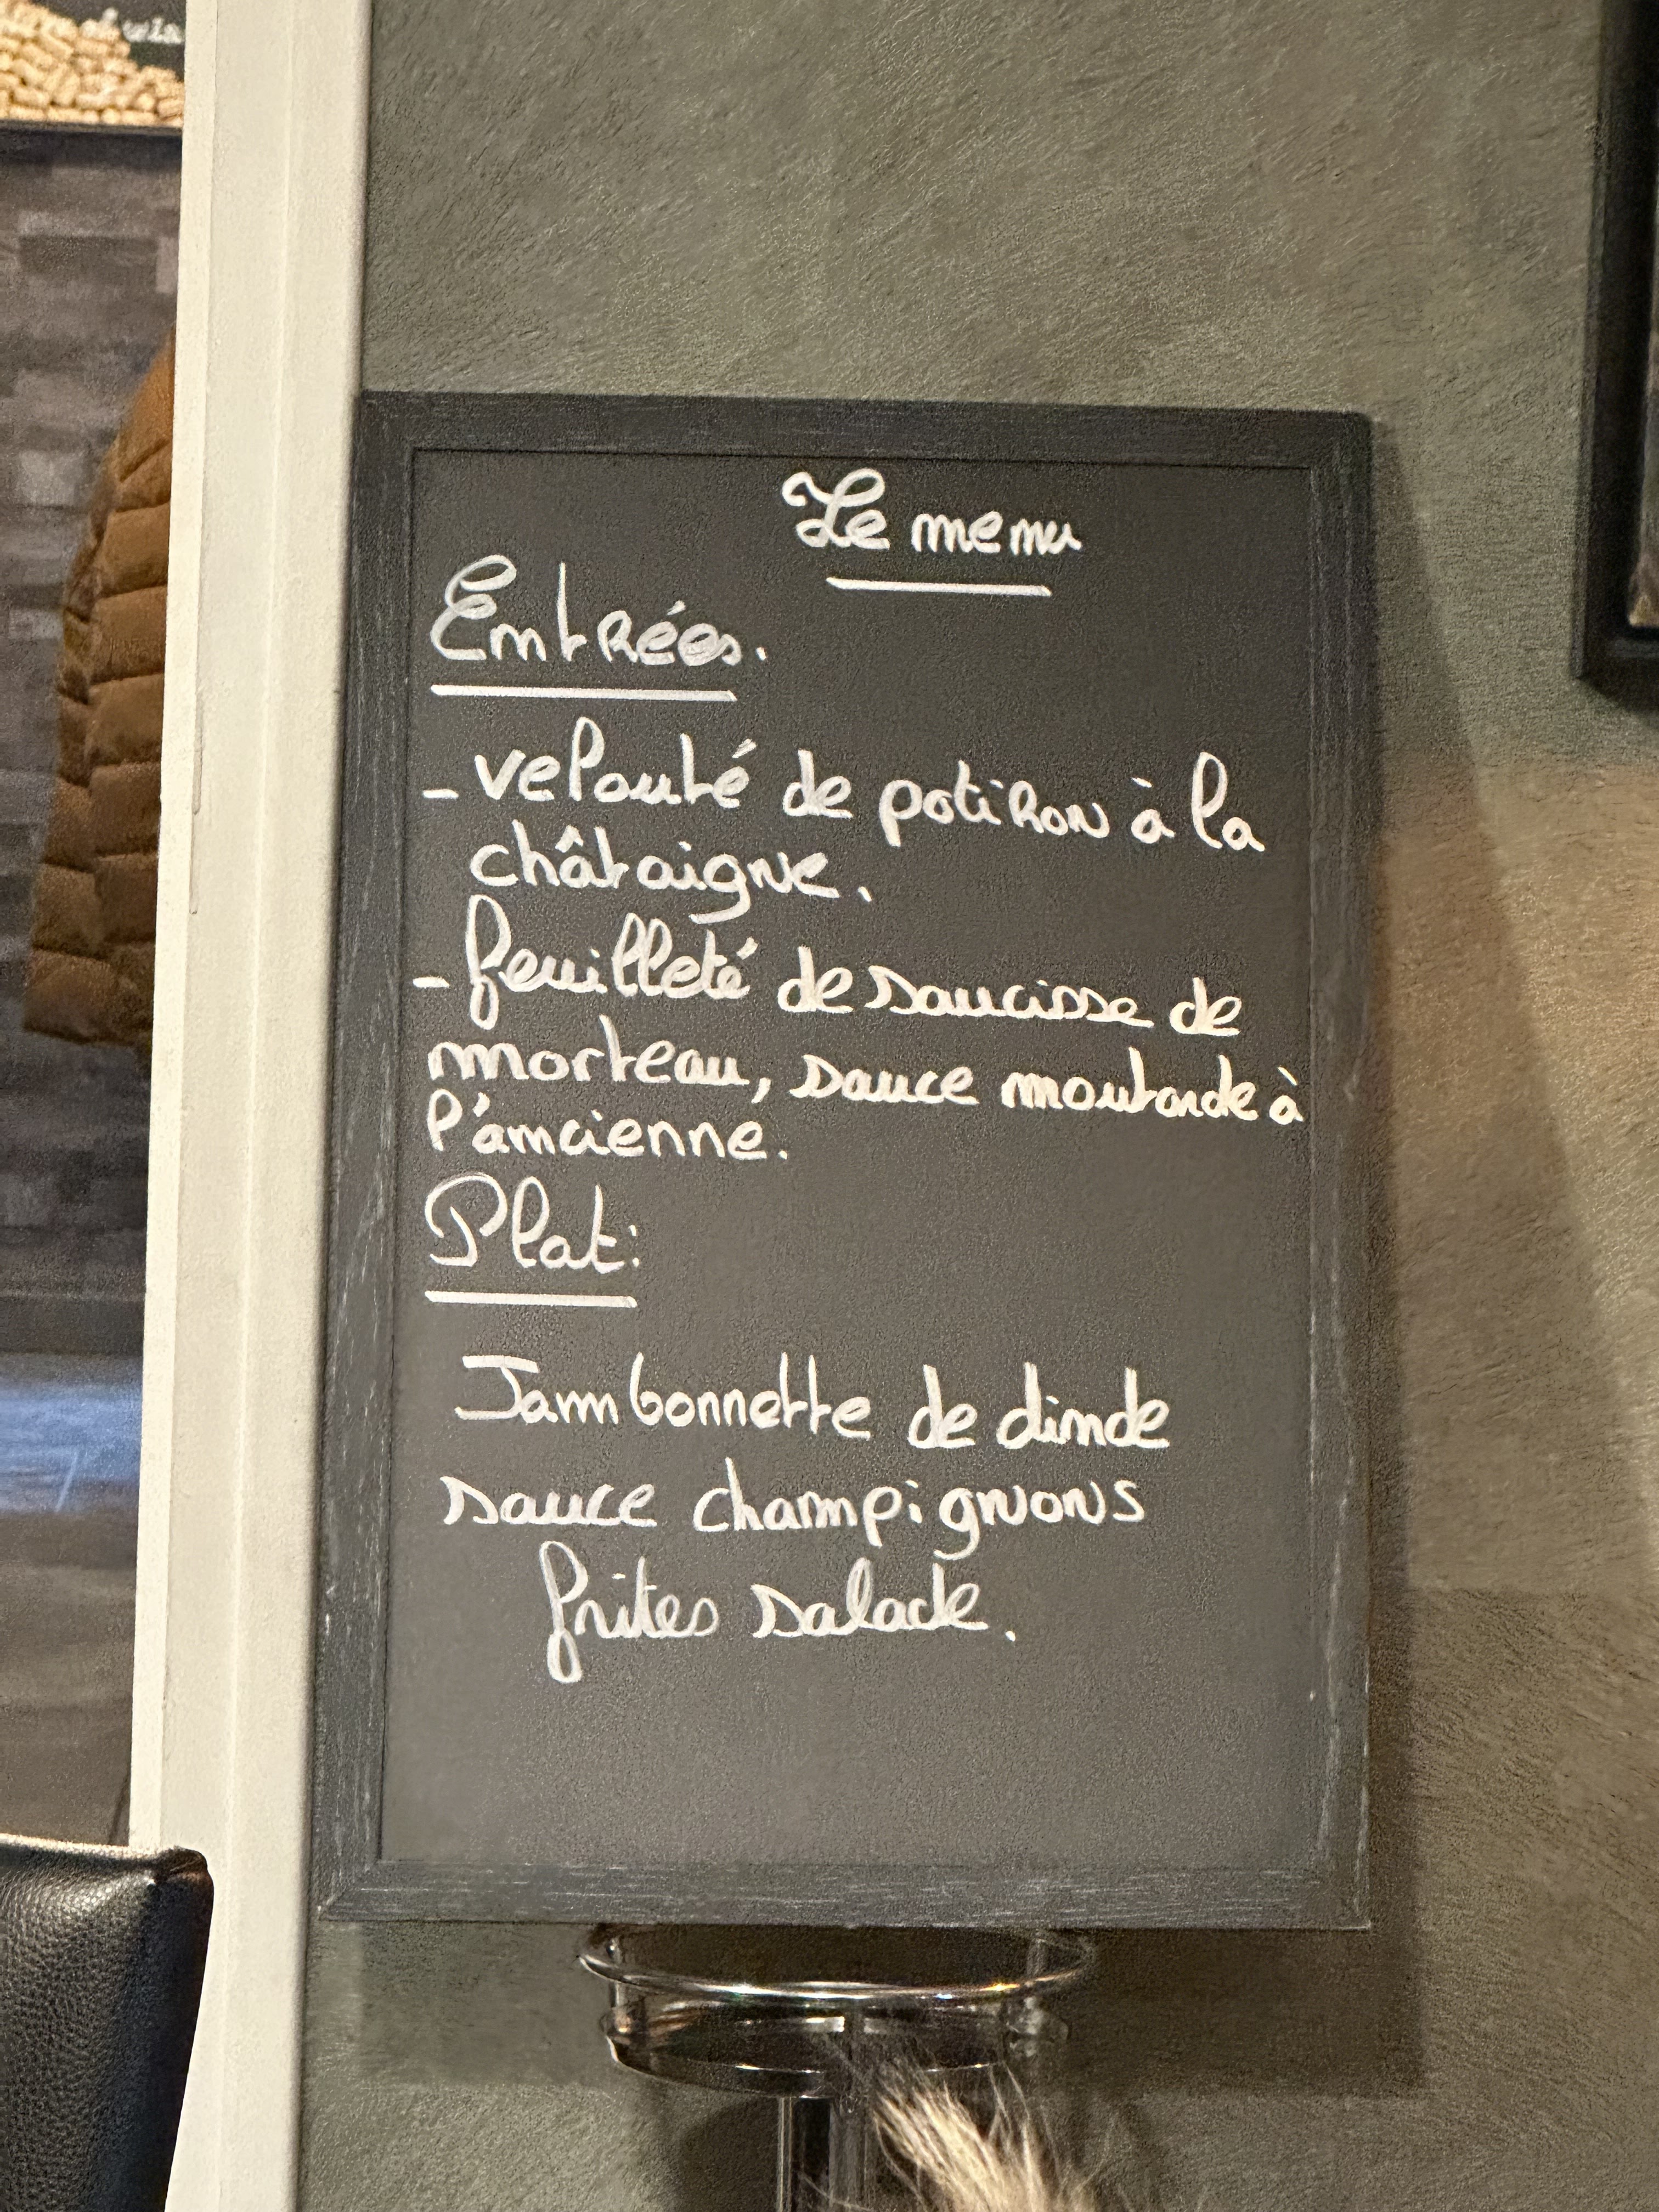 Le menu
Entrées.
- velouté de potiron à la
châtaigne.
- feuilleté de saucisse de
morteau, sauce moutarde à
l'ancienne.
Plat:
Jambonnette de dinde
sauce champignons
frites salade.